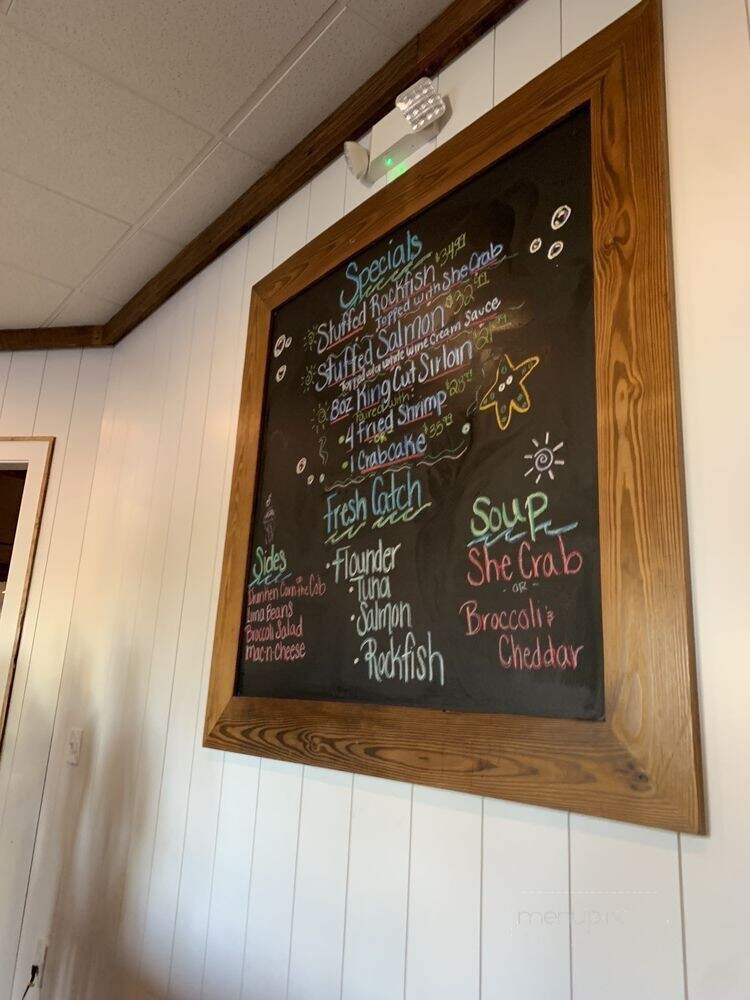 Specials
Stuffed Rockfish $34.99
Topped with She Crab
Stuffed Salmon $32.99
Topped w/ a white wine Cream Sauce
8oz King Cut Sirloin
Paired with:
• 4 Fried Shrimp
• 1 Crabcake $35.99
Fresh Catch
• Flounder
• Tuna
• Salmon
• Rockfish
Sides
Drunken Corn on the Cob
Lima Beans
Broccoli Salad
Mac-n-Cheese
Soup
She Crab
- OR -
Broccoli &
Cheddar
menupix